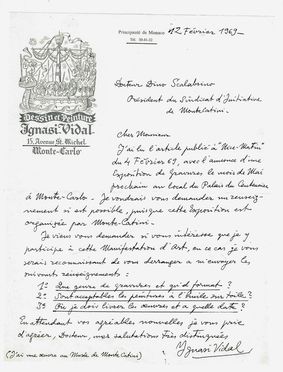 Principauté de Monaco
Tél. 30-61-52
12 Février 1969_
Dessin et Peinture
Ignasi Vidal
15, Avenue St. Michel
Monte-Carlo
Docteur Dino Scalabrino
Président du Sindicat d'Initiative
de Montecatini.
Cher Monsieur
J'ai lu l'article publié à "Nice-Matin"
du 4 Février 69, avec l'annonce d'une
Exposition de gravures le mois de Mai
prochain au local du Palais du Centenaire
à Monte-Carlo. Je voudrais vous demander un rensei-
gnement si est possible, puisque cette Exposition est
organisée par Monte-Catini.
Je viens vous demander si vous interesse que je y
participe à cette Manifestation d'Art, en ce car je vous
serais reconnaissant de vous derranger a m'envoyer les
suivants renseignements:
1º Que genre de gravures et qu'd format?
2º Sont acceptables les peintures à l'huile sur toile?
3º Où je dois livrer les œuvres et a quelle date?
En attendant vos agréables nouvelles je vous prie
d'agréer, Docteur, mes salutations très distinguées
(J'ai une œuvre au Musée de Monte Catini)
Ignasi Vidal